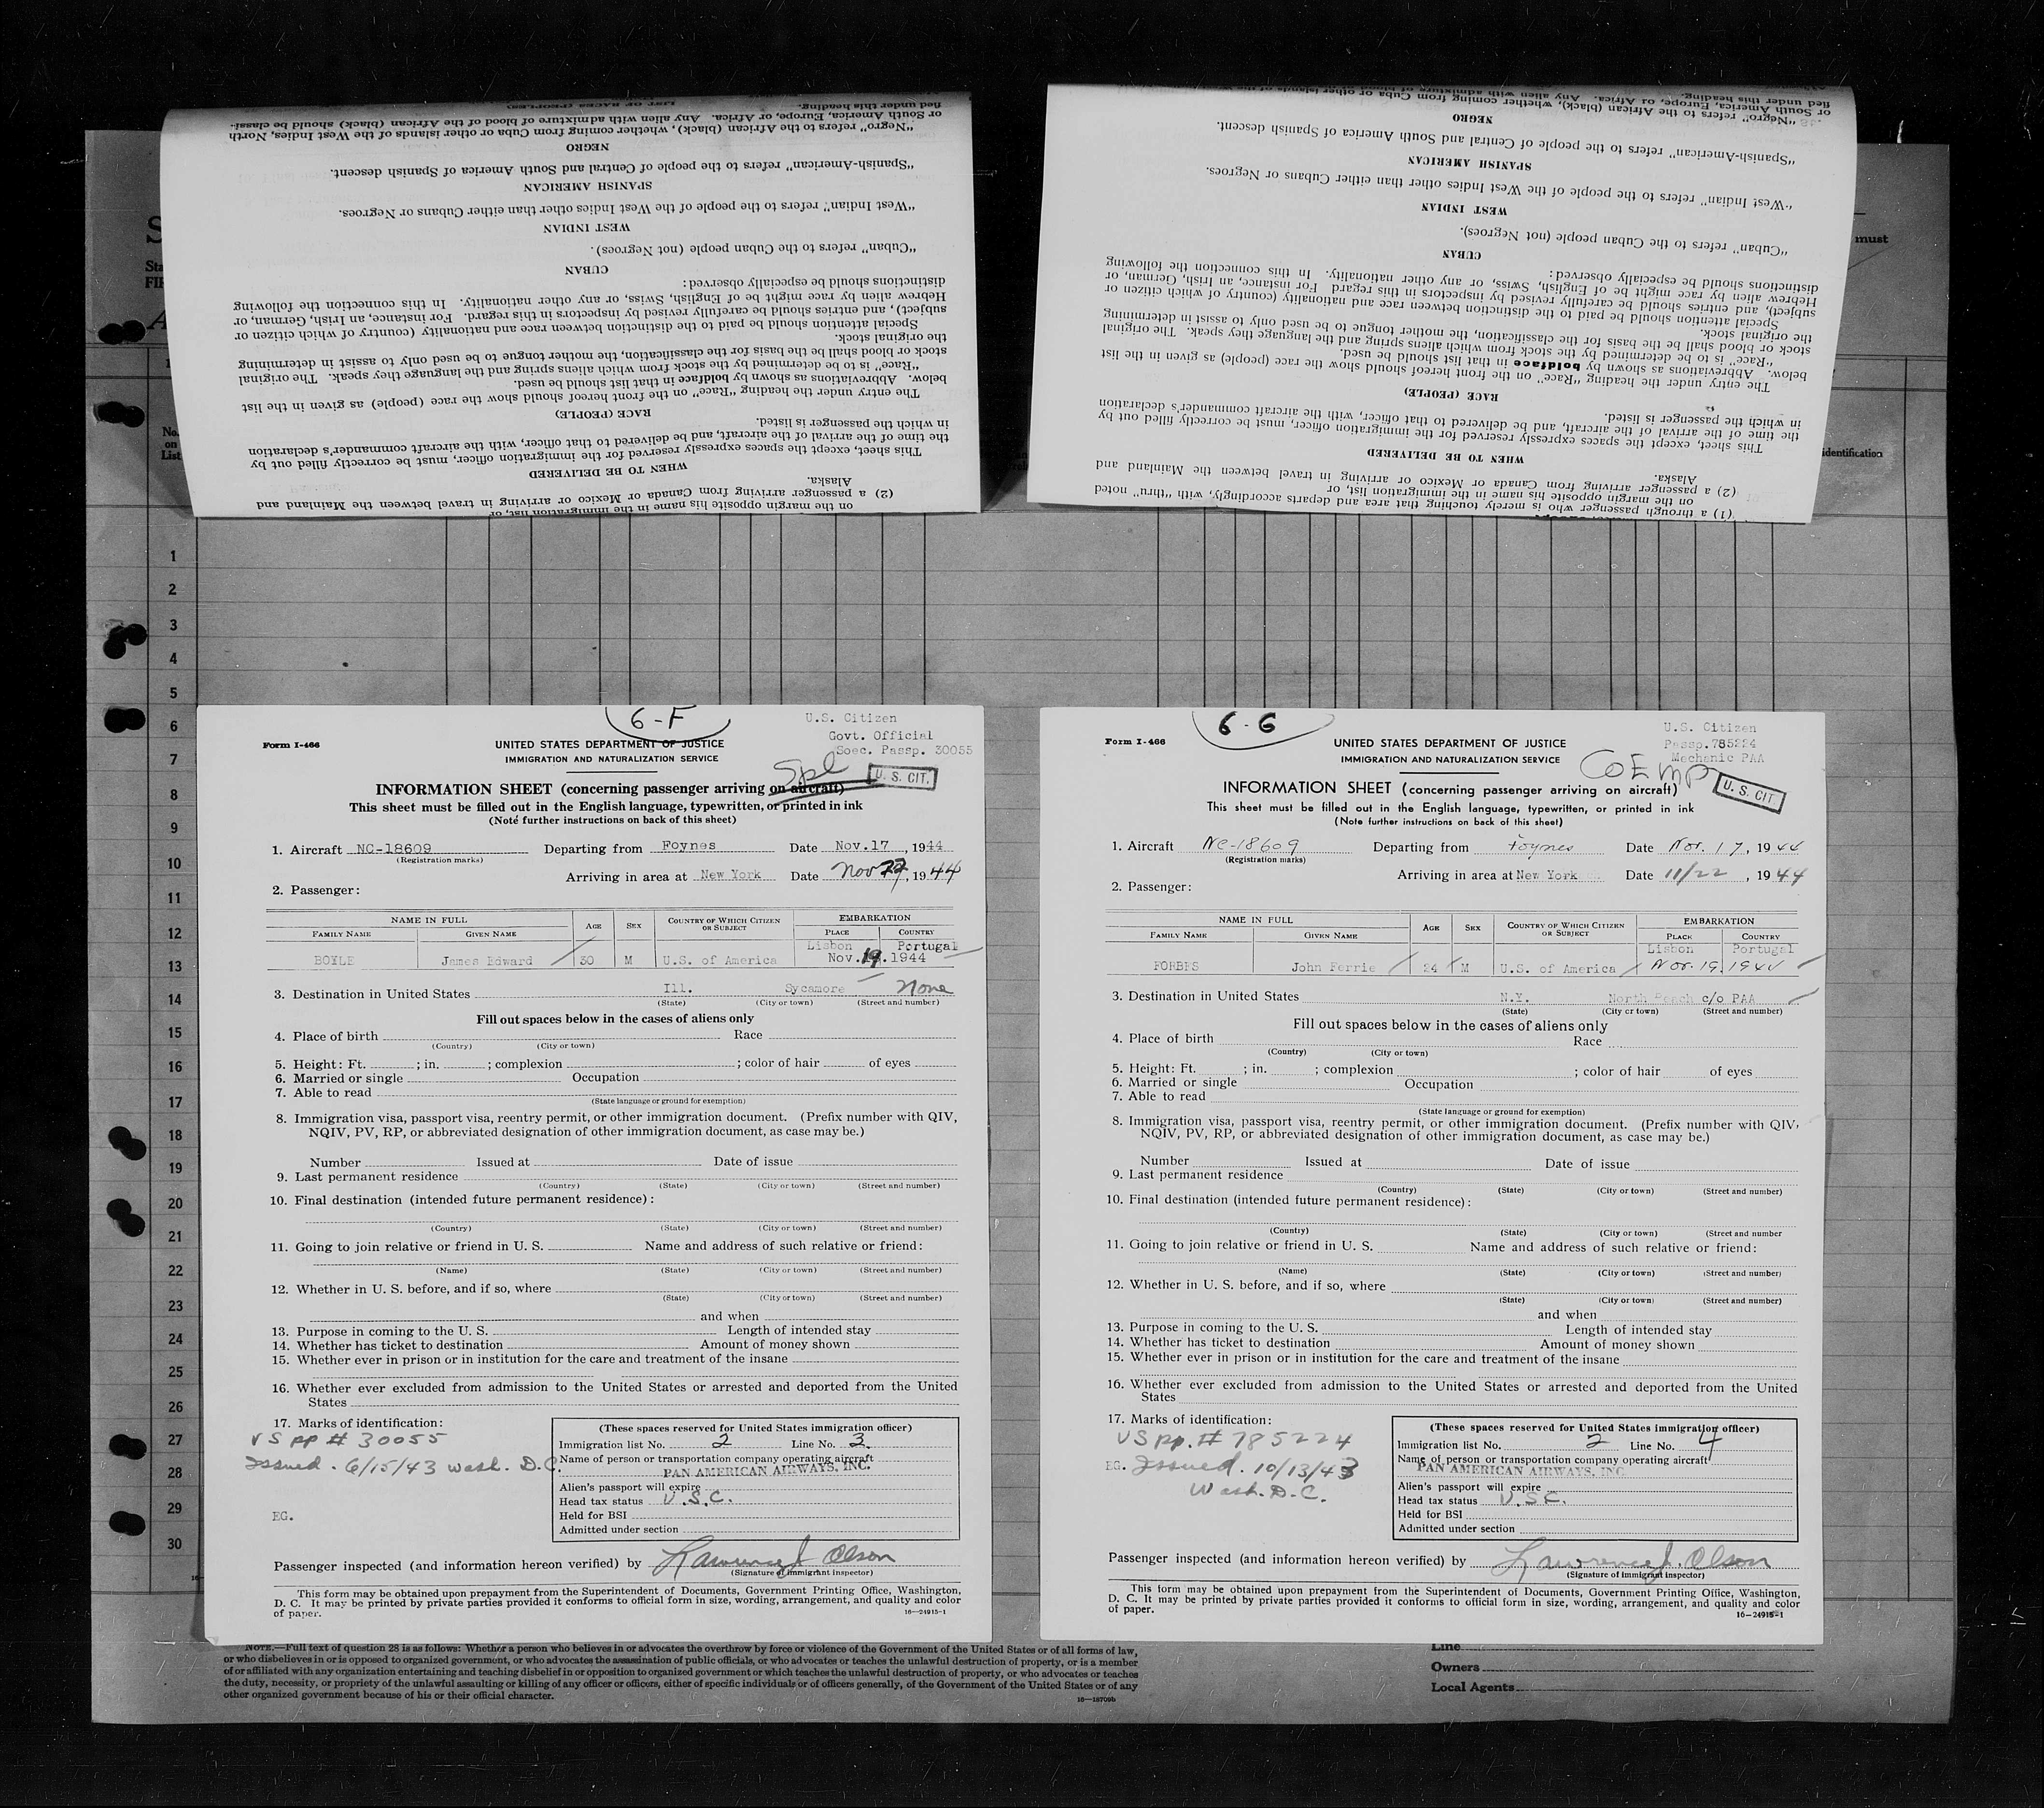 LIST OF RACES (PEOPLES)
fied under this heading.
or South America, Europe, or Africa. Any alien with admixture of blood of the African (black) should be classi-
"Negro" refers to the African (black), whether coming from Cuba or other islands of the West Indies, North
NEGRO
"Spanish-American" refers to the people of Central and South America of Spanish descent.
SPANISH AMERICAN
"West Indian" refers to the people of the West Indies other than either Cubans or Negroes.
WEST INDIAN
"Cuban" refers to the Cuban people (not Negroes).
CUBAN
distinctions should be especially observed:
Hebrew alien by race might be of English, Swiss, or any other nationality. In this connection the following
subject), and entries should be carefully revised by inspectors in this regard. For instance, an Irish, German, or
Special attention should be paid to the distinction between race and nationality (country of which citizen or
the original stock.
stock or blood shall be the basis for the classification, the mother tongue to be used only to assist in determining
"Race" is to be determined by the stock from which aliens spring and the language they speak. The original
below. Abbreviations as shown by boldface in that list should be used.
The entry under the heading "Race" on the front hereof should show the race (people) as given in the list
RACE (PEOPLE)
in which the passenger is listed.
the time of the arrival of the aircraft, and be delivered to that officer, with the aircraft commander's declaration
This sheet, except the spaces expressly reserved for the immigration officer, must be correctly filled out by
WHEN TO BE DELIVERED
Alaska.
(2) a passenger arriving from Canada or Mexico or arriving in travel between the Mainland and
on the margin opposite his name in the immigration list, or
fied under this heading.
or South America, Europe, or Africa. Any alien with admixture of blood of the African (black) should be classi-
"Negro" refers to the African (black), whether coming from Cuba or other islands of the West Indies, North
NEGRO
"Spanish-American" refers to the people of Central and South America of Spanish descent.
SPANISH AMERICAN
"West Indian" refers to the people of the West Indies other than either Cubans or Negroes.
WEST INDIAN
"Cuban" refers to the Cuban people (not Negroes).
CUBAN
distinctions should be especially observed:
Hebrew alien by race might be of English, Swiss, or any other nationality. In this connection the following
subject), and entries should be carefully revised by inspectors in this regard. For instance, an Irish, German, or
Special attention should be paid to the distinction between race and nationality (country of which citizen or
the original stock.
stock or blood shall be the basis for the classification, the mother tongue to be used only to assist in determining
"Race" is to be determined by the stock from which aliens spring and the language they speak. The original
below. Abbreviations as shown by boldface in that list should be used.
The entry under the heading "Race" on the front hereof should show the race (people) as given in the list
RACE (PEOPLE)
in which the passenger is listed.
the time of the arrival of the aircraft, and be delivered to that officer, with the aircraft commander's declaration
This sheet, except the spaces expressly reserved for the immigration officer, must be correctly filled out by
WHEN TO BE DELIVERED
Alaska.
(2) a passenger arriving from Canada or Mexico or arriving in travel between the Mainland and
on the margin opposite his name in the immigration list, or
(1) a through passenger who is merely touching that area and departs accordingly, with "thru" noted
S
Sta
FIR
A
must
No.
on
List
identification
1
2
3
4
5
6
7
8
9
10
11
12
13
14
15
16
17
18
19
20
21
22
23
24
25
26
27
28
29
30
6-F
U.S. Citizen
Govt. Official
Spec. Passp. 30055
Form I-466
UNITED STATES DEPARTMENT OF JUSTICE
IMMIGRATION AND NATURALIZATION SERVICE
Spl
U. S. CIT.
INFORMATION SHEET (concerning passenger arriving on aircraft)
This sheet must be filled out in the English language, typewritten, or printed in ink
(Note further instructions on back of this sheet)
1. Aircraft NC-18609 Departing from Foynes Date Nov.17, 1944
(Registration marks)
Arriving in area at New York Date Nov 22, 1944
2. Passenger:
NAME IN FULL AGE SEX COUNTRY OF WHICH CITIZEN OR SUBJECT EMBARKATION
FAMILY NAME GIVEN NAME PLACE COUNTRY
Lisbon Portugal
BOYLE James Edward 30 M U.S. of America Nov. 19.1944
3. Destination in United States Ill. Sycamore None
(State) (City or town) (Street and number)
Fill out spaces below in the cases of aliens only
4. Place of birth Race
(Country) (City or town)
5. Height: Ft. ; in. ; complexion ; color of hair of eyes
6. Married or single Occupation
7. Able to read
(State language or ground for exemption)
8. Immigration visa, passport visa, reentry permit, or other immigration document. (Prefix number with QIV,
NQIV, PV, RP, or abbreviated designation of other immigration document, as case may be.)
Number Issued at Date of issue
9. Last permanent residence
(Country) (State) (City or town) (Street and number)
10. Final destination (intended future permanent residence):
(Country) (State) (City or town) (Street and number)
11. Going to join relative or friend in U. S. Name and address of such relative or friend:
(Name) (State) (City or town) (Street and number)
12. Whether in U. S. before, and if so, where
(State) (City or town) (Street and number)
and when
13. Purpose in coming to the U. S. Length of intended stay
14. Whether has ticket to destination Amount of money shown
15. Whether ever in prison or in institution for the care and treatment of the insane
16. Whether ever excluded from admission to the United States or arrested and deported from the United
States
17. Marks of identification:
VS pp # 30055
Issued. 6/15/43 Wash. D.C.
EG.
(These spaces reserved for United States immigration officer)
Immigration list No. 2 Line No. 3.
Name of person or transportation company operating aircraft
PAN AMERICAN AIRWAYS, INC.
Alien's passport will expire
Head tax status U.S.C.
Held for BSI
Admitted under section
Passenger inspected (and information hereon verified) by Lawrence J Olson
(Signature of immigrant inspector)
This form may be obtained upon prepayment from the Superintendent of Documents, Government Printing Office, Washington,
D. C. It may be printed by private parties provided it conforms to official form in size, wording, arrangement, and quality and color
of paper.
16—24915-1
6-G
U.S. Citizen
Passp. 785224
Mechanic PAA
Form I-466
UNITED STATES DEPARTMENT OF JUSTICE
IMMIGRATION AND NATURALIZATION SERVICE
CoEmp
U. S. CIT.
INFORMATION SHEET (concerning passenger arriving on aircraft)
This sheet must be filled out in the English language, typewritten, or printed in ink
(Note further instructions on back of this sheet)
1. Aircraft NC-18609 Departing from Foynes Date Nov. 17, 1944
(Registration marks)
Arriving in area at New York Date 11/22, 1944
2. Passenger:
NAME IN FULL AGE SEX COUNTRY OF WHICH CITIZEN OR SUBJECT EMBARKATION
FAMILY NAME GIVEN NAME PLACE COUNTRY
Lisbon Portugal
FORBES John Ferrie 24 M U.S. of America Nov. 19. 1944
3. Destination in United States N.Y. North Beach c/o PAA
(State) (City or town) (Street and number)
Fill out spaces below in the cases of aliens only
4. Place of birth Race
(Country) (City or town)
5. Height: Ft. ; in. ; complexion ; color of hair of eyes
6. Married or single Occupation
7. Able to read
(State language or ground for exemption)
8. Immigration visa, passport visa, reentry permit, or other immigration document. (Prefix number with QIV,
NQIV, PV, RP, or abbreviated designation of other immigration document, as case may be.)
Number Issued at Date of issue
9. Last permanent residence
(Country) (State) (City or town) (Street and number)
10. Final destination (intended future permanent residence):
(Country) (State) (City or town) (Street and number
11. Going to join relative or friend in U. S. Name and address of such relative or friend:
(Name) (State) (City or town) (Street and number)
12. Whether in U. S. before, and if so, where
(State) (City or town) (Street and number)
and when
13. Purpose in coming to the U. S. Length of intended stay
14. Whether has ticket to destination Amount of money shown
15. Whether ever in prison or in institution for the care and treatment of the insane
16. Whether ever excluded from admission to the United States or arrested and deported from the United
States
17. Marks of identification:
VS pp. # 785224
EG. Issued. 10/13/43
Wash. D.C.
(These spaces reserved for United States immigration officer)
Immigration list No. 2 Line No. 4
Name of person or transportation company operating aircraft
PAN AMERICAN AIRWAYS, INC.
Alien's passport will expire
Head tax status U.S.C.
Held for BSI
Admitted under section
Passenger inspected (and information hereon verified) by Lawrence J. Olson
(Signature of immigrant inspector)
This form may be obtained upon prepayment from the Superintendent of Documents, Government Printing Office, Washington,
D. C. It may be printed by private parties provided it conforms to official form in size, wording, arrangement, and quality and color
of paper.
16—24915-1
NOTE.—Full text of question 28 is as follows: Whether a person who believes in or advocates the overthrow by force or violence of the Government of the United States or of all forms of law,
or who disbelieves in or is opposed to organized government, or who advocates the assassination of public officials, or who advocates or teaches the unlawful destruction of property, or is a member
of or affiliated with any organization entertaining and teaching disbelief in or opposition to organized government or which teaches the unlawful destruction of property, or who advocates or teaches
the duty, necessity, or propriety of the unlawful assaulting or killing of any officer or officers, either of specific individuals or of officers generally, of the Government of the United States or of any
other organized government because of his or their official character.
16—18709b
Line
Owners
Local Agents